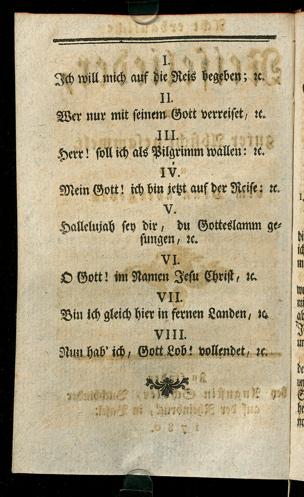 I.
Ich will mich auf die Reis begeben; ꝛc.
II.
Wer nur mit seinem Gott verreiset, ꝛc.
III.
Herr! soll ich als Pilgrimm wallen: ꝛc.
IV.
Mein Gott! ich bin jetzt auf der Reise: ꝛc.
V.
Hallelujah sey dir, du Gotteslamm ge-
sungen, ꝛc.
VI.
O Gott! im Namen Jesu Christ, ꝛc.
VII.
Bin ich gleich hier in fernen Landen, ꝛc.
VIII.
Nun hab' ich, Gott Lob! vollendet, ꝛc.